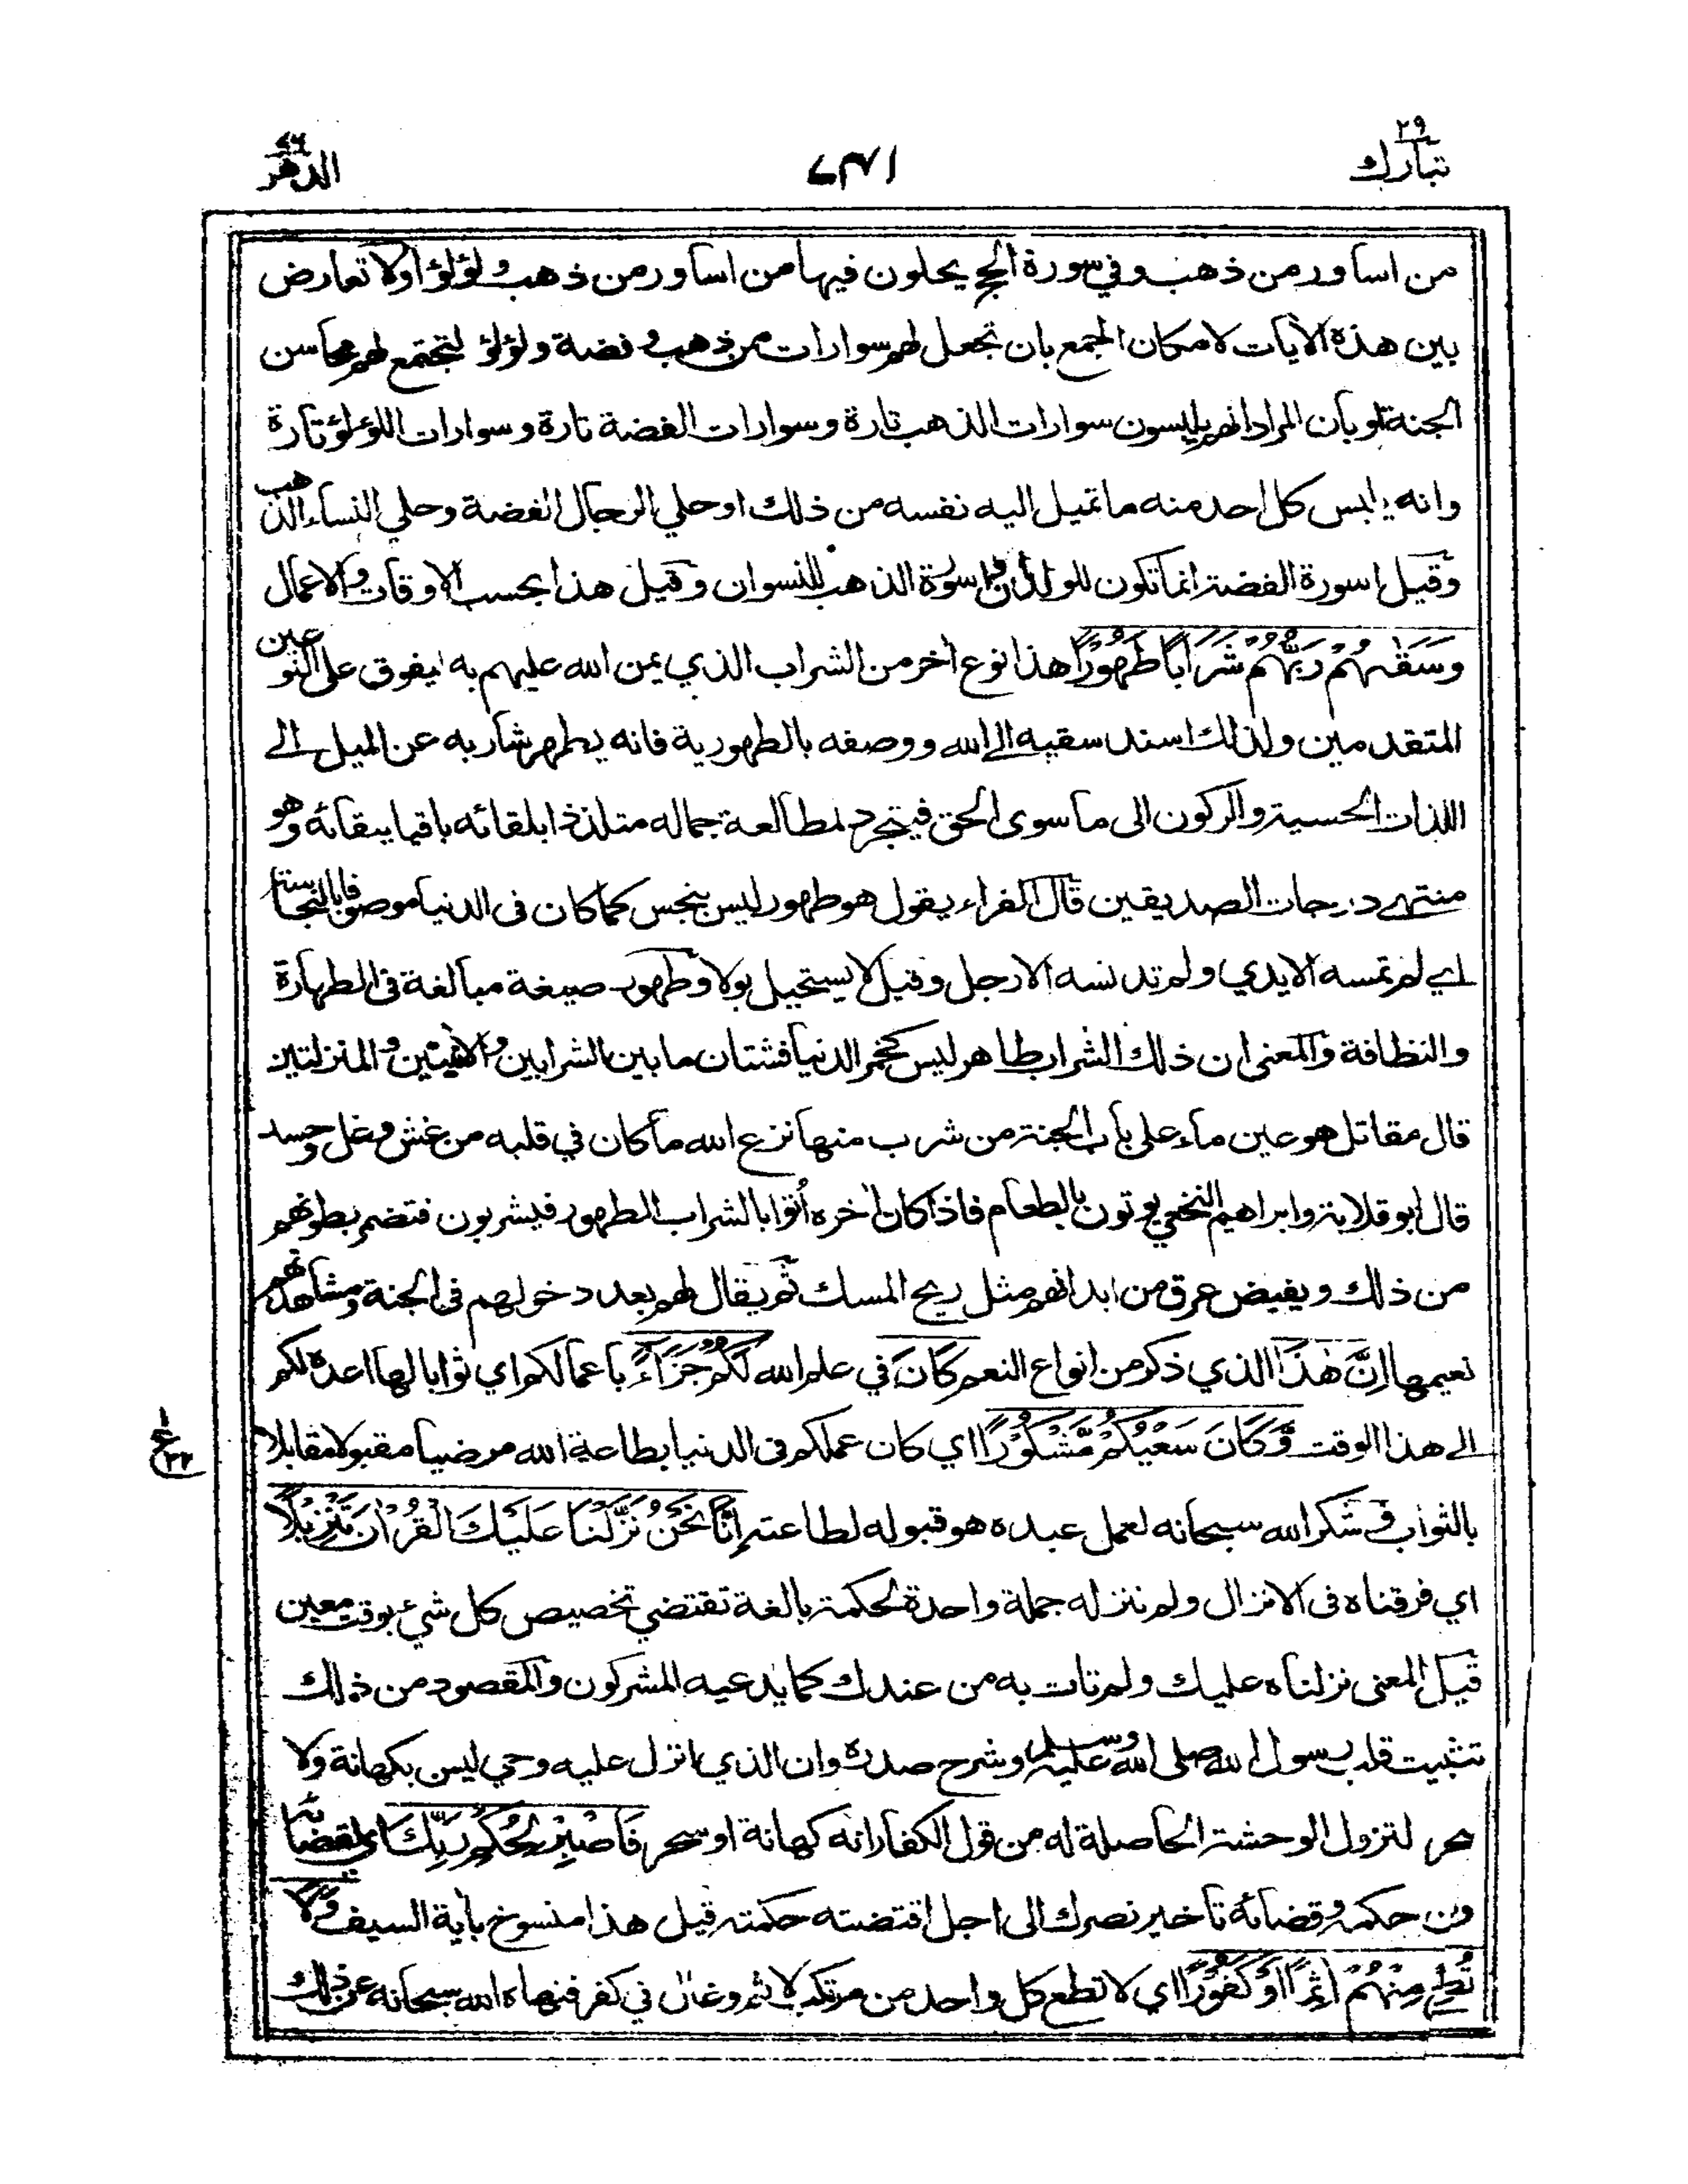 تبارك ٢٩
الدهر ٧٦
من اساور من ذهب وفي سورة الحج يحلون فيها من اساور من ذهب ولؤلؤا ولا تعارض
بين هذه الآيات لامكان الجمع بان تجعل لهم سوارات من ذهب و فضة ولؤلؤ لتجتمع لهم محاسن
الجنة او بان المراد انهم يلبسون سوارات الذهب تارة وسوارات الفضة تارة وسوارات اللؤلؤ تارة
وانه يلبس كل احد منه ما تميل اليه نفسه من ذلك او حلي الرجال الفضة وحلي النساء الذهب
وقيل اسورة الفضة انما تكون للولدان واسورة الذهب للنسوان وقيل هذا بحسب الاوقات والاعمال
وَسَقٰىهُمْ رَبُّهُمْ شَرَابًا طَهُوْرًا هذا نوع آخر من الشراب الذي يمن الله عليهم به يفوق على النوعين
المتقدمين ولذلك اسند سقيه الى الله ووصفه بالطهورية فانه يطهر شاربه عن الميل الى
اللذات الحسية والركون الى ما سوى الحق فيتجرد لمطالعة جماله متلذذا بلقائه باقيا ببقائه وهو
منتهى درجات الصديقين قال الفراء يقول هو طهور ليس بنجس كما كان فى الدنيا موصوفا بالنجاسة
اي لم تمسه الايدي ولم تدنسه الارجل وقيل لا يستحيل بولا وطهور صيغة مبالغة فى الطهارة
والنظافة والمعنى ان ذلك الشراب طاهر ليس كخمر الدنيا فشتان ما بين الشرابين والآنيتين والمنزلتين
قال مقاتل هو عين ماء على باب الجنة من شرب منها نزع الله ما كان في قلبه من غش وغل وحسد
قال ابو قلابة وابراهيم النخعي يوتون بالطعام فاذا كان اخره أتوا بالشراب الطهور فيشربون فتضمر بطونهم
من ذلك ويفيض عرق من ابدانهم مثل ريح المسك ثم يقال لهم بعد دخولهم فى الجنة ومشاهدتهم
نعيمها اِنَّ هٰذَا الذي ذكر من انواع النعم كَانَ في علم الله لَكُمْ جَزَآءً باعمالكم اي ثوابا لها اعده لكم
الى هذا الوقت وَّكَانَ سَعْيُكُمْ مَّشْكُوْرًا اي كان عملكم فى الدنيا بطاعة الله مرضيا مقبولا مقابلا
بالثواب وشكر الله سبحانه لعمل عبده هو قبوله لطاعته اِنَّا نَحْنُ نَزَّلْنَا عَلَيْكَ الْقُرْاٰنَ تَنْزِيْلًا
اي فرقناه فى الانزال ولم ننزله جملة واحدة لحكمة بالغة تقتضي تخصيص كل شيء بوقت معين
قيل المعنى نزلناه عليك ولم تات به من عندك كما يدعيه المشركون والمقصود من ذلك
تثبيت قلب رسول الله صلى الله عليه وسلم وشرح صدره وان الذي انزل عليه وحي ليس بكهانة ولا
سحر لتزول الوحشة الحاصلة له من قول الكفار انه كهانة او سحر فَاصْبِرْ لِحُكْمِ رَبِّكَ اي لقضائه
ومن حكمه وقضائه تاخير نصرك الى اجل اقتضته حكمته قيل هذا منسوخ بآية السيف وَلَا
تُطِعْ مِنْهُمْ اٰثِمًا اَوْ كَفُوْرًا اي لا تطع كل واحد من مرتكب لاثم وغال في كفر فنهاه الله سبحانه عن ذلك